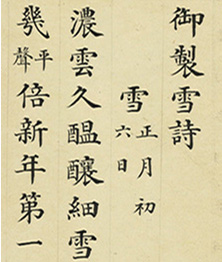 御製雪詩
雪正月初六日
濃雲久醞釀細雪
幾平聲倍新年第一